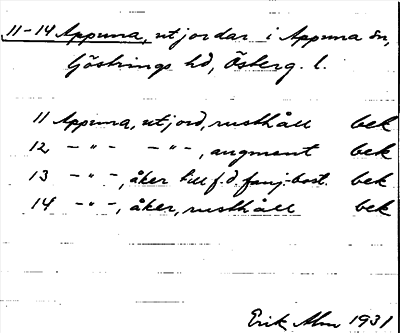 11-14 Appuna, utjordar i Appuna sn,
Göstrings hd, Österg. l.
11 Appuna, utjord, rusthåll bek
12 -"- -"-, augment bek
13 -"-, åker till f.d. fanj.bost. bek
14 -"-, åker, rusthåll bek
Erik Alm 1931